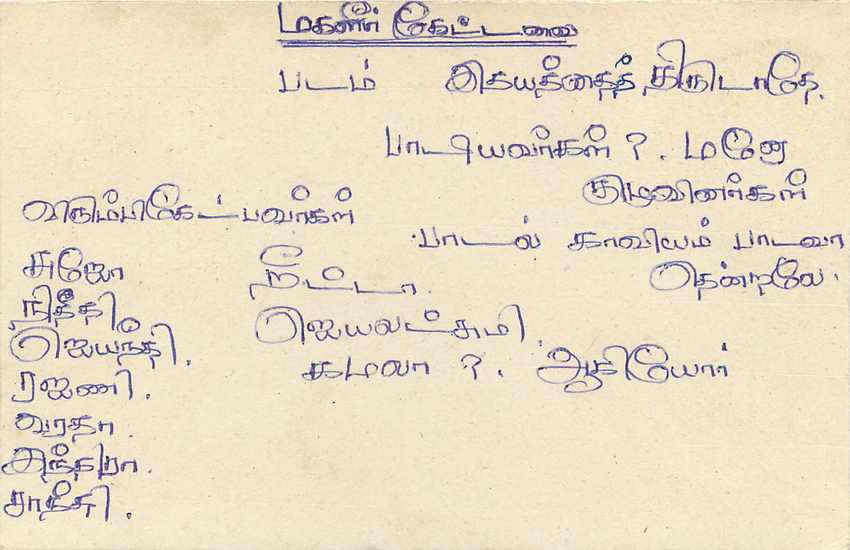 மகளீர் கேட்டவை
படம் இதயத்தைத் திருடாதே.
பாடியவர்கள் ?. மனோ
குழுவினர்கள்
விரும்பிகேட்பவர்கள்
பாடல் காவியம் பாடவா
தென்றலே.
சுஜோ
நீட்டா.
ஜெயந்தி.
ஜெயலட்சுமி.
ரஜனி.
கமலா ?. ஆகியோர்
வரதா.